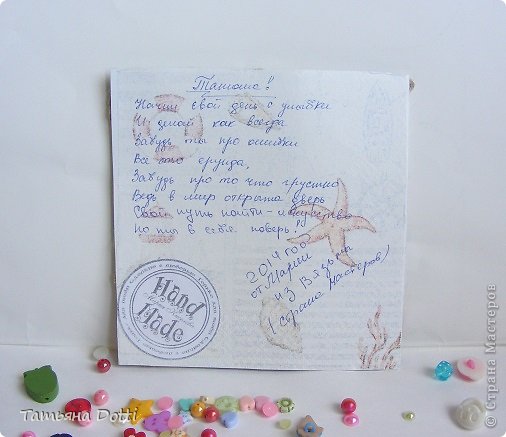 Танюша!
Начни свой день с улыбки
И делай как всегда
Забудь ты про ошибки
Всё это ерунда.
Забудь про то что грустно
Ведь в мир открыта дверь
Свой путь найти - искусство
Но ты в себя поверь!
2014 год
от Марии
из Вязьмы
(Страна Мастеров)
Hand
Made
Татьяна Dotti
© Страна Мастеров